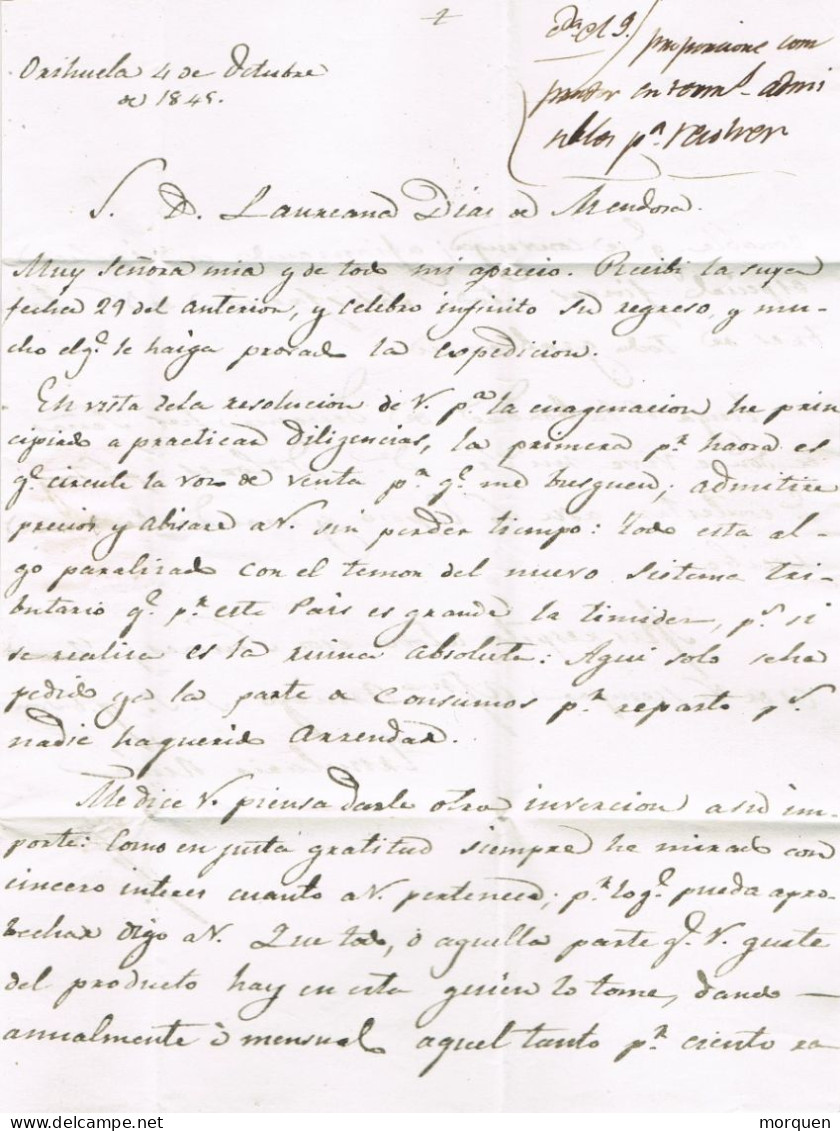 Orihuela 4 de Octubre
de 1845.
proporcione com
admi
pª. resolver
S. D. Laureana Dias de Mendosa.
Muy Señora mia y de todo mi aprecio. Recibi la suya
fecha 29 del anterior, y celebro infinito su regreso, y mu-
cho el qº. le haiga provado la Expedicion.
En vista dela resolucion de V. pª la enagenacion he prin
cipiado a practicar diligencias, la primera pʳ. haora es
qᵉ. circule la voz de venta pª qᵉ. me busquen; admitire
precios y abisare a V. sin perder tiempo: todo esta al-
go paralizado con el temor del nuevo sistema tri-
butario qᵉ. pʳ. este Pais es grande la timidez, pˢ. si
se realiza es la ruina absoluta: Aqui solo seha
pedido ya la parte a Consumos pʳ. reparto pˢ.
nadie haquerido arrendar.
Me dice V. piensa darle otra invercion a su im-
porte: Como en justa gratitud siempre he mirado con
cincero interes cuanto a V. pertenece; pʳ. loqᵉ. pueda apro
bechar digo a V. Que todo, ó aquella parte qᵉ. V. guste
del producto hay en esta quien lo tome, dando —
anualmente ó mensual aquel tanto pʳ. ciento ra
morquen